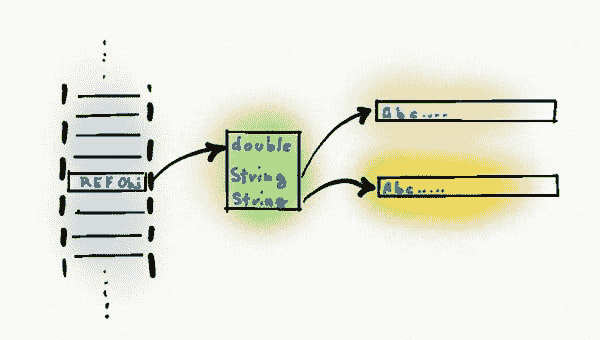 REF Obj
double
String
String
Abc.....
Abc.....